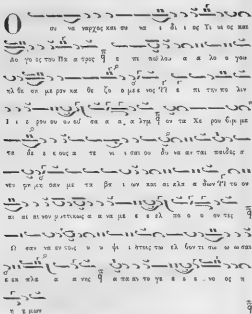 Ο συ να ναρχος και συ να ι δι ος Υι ος και
Λο γο ος του Πα α τρος ε πι πω λου α α λο γου
ηλ θε ση με ρον κα θε ζο ο με ε νος ε πι την πο λιν
Ι ε ρου ου ου ου σα α α λημ ον τα Χε ρου βι μ με
τα δε ε ε ους α τε νι ι σαι ου δυ να αν ται παιδες α
νευ φη μη σαν με τα βα ι ων και αι κλα α δων το ον
αι αι αι νον μυστικως α α να με ε ε ελ πο ο ο ον τες
Ω σαν να εν τοις υ υ ψι ι στοις τω ελ θον τι σω ω ω σαι
ε εκ πλα α α νης α παν το γε ε ε ε νο ος η
η μων